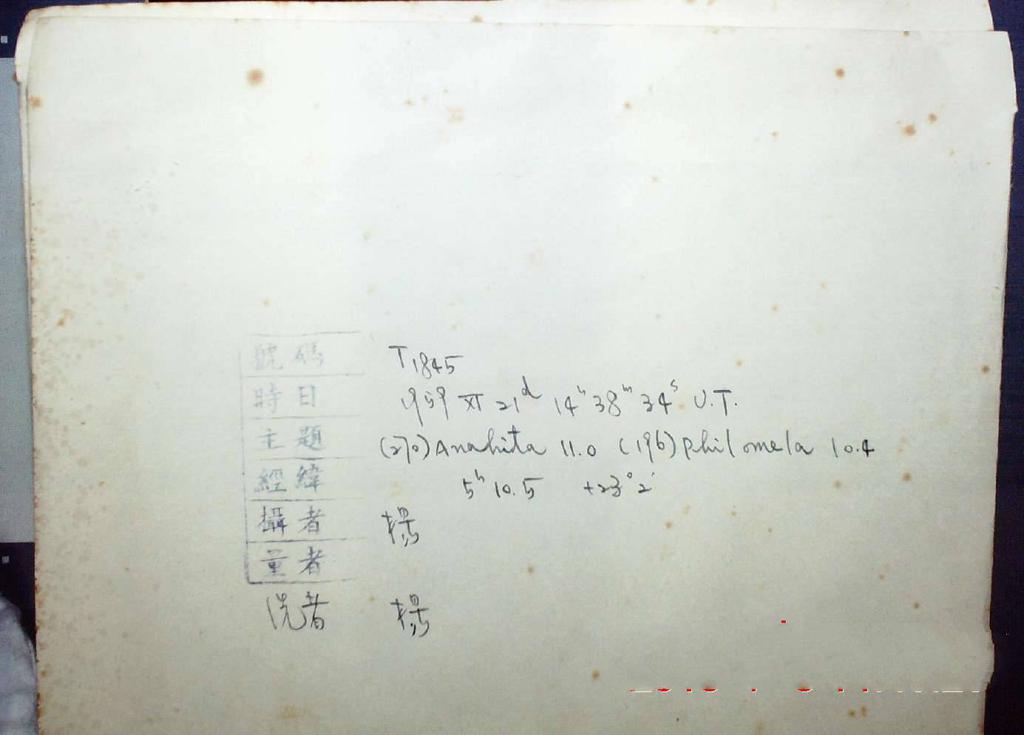 號碼 T1845
時日 1959 XI 21d 14h 38m 34s U.T.
主題 (270) Anahita 11.0 (196) Philomela 10.4
經緯 5h 10.5 +23° 2'
攝者 楊
量者
洗者 楊